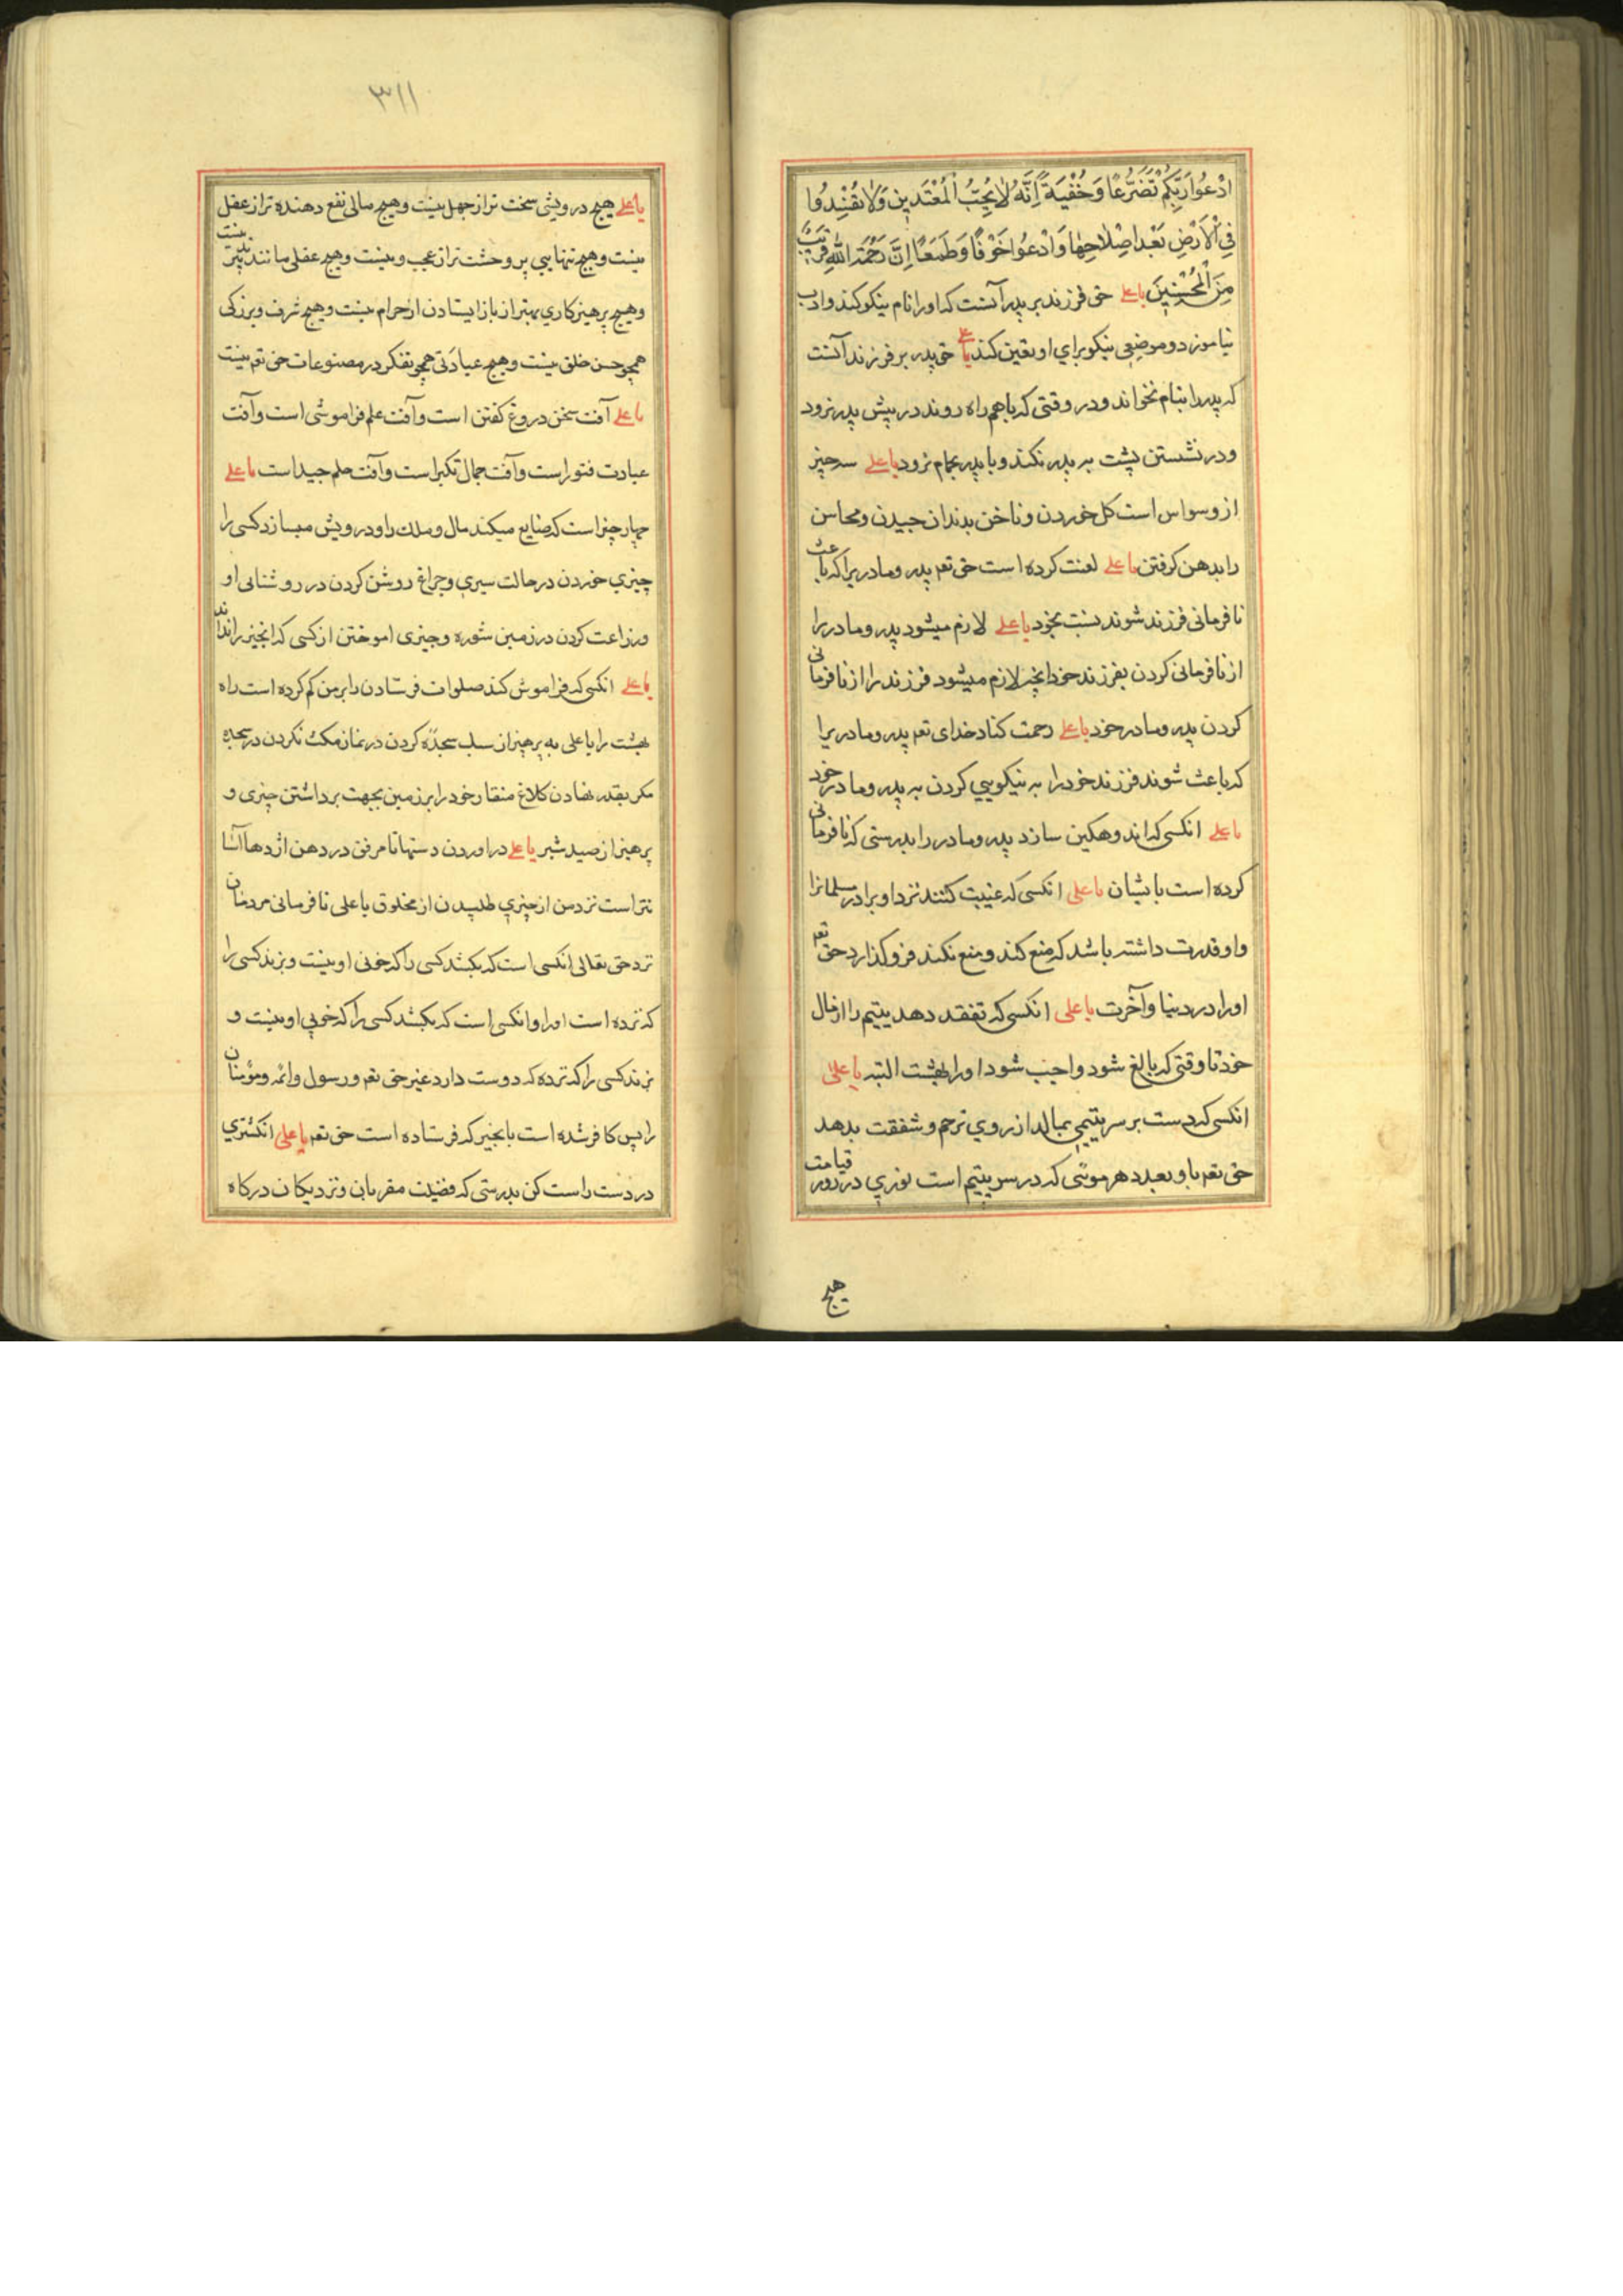 ادْعُوا رَبَّكُمْ تَضَرُّعًا وَخُفْيَةً اِنَّهُ لَا يُحِبُّ الْمُعْتَدِينَ وَلَا تُفْسِدُوا
فِي الْاَرْضِ بَعْدَ اِصْلَاحِهَا وَادْعُوا خَوْفًا وَطَمَعًا اِنَّ رَحْمَةَ اللّٰهِ قَرِيبٌ
مِنَ الْمُحْسِنِينَ يا علي حق فرزند بر پدر آنست که اورا نام نیکو کند وادب
بیاموزد وموضعی نیکو برای او تعین کند یا علی حق پدر بر فرزند آنست
که پدر را بنام نخواند ودر وقتی که باهم راه روند در پیش پدر نرود
ودر نشستن پشت به پدر نکند وبا پدر بحمام نرود یا علی سه چیز
از وسواس است کل خوردن وناخن بدندان چیدن ومحاسن
را بدهن کرفتن یا علی لعنت کرده است حق تعم پدر ومادریرا که باعث
نافرمانی فرزند شوند نسبت بخود یا علی لازم میشود پدر ومادر را
از نافرمانی کردن بفرزند خود انچه لازم میشود فرزند را از نافرمانی
کردن پدر ومادر خود یا علی رحمت کناد خدای تعم پدر ومادریرا
که باعث شوند فرزند خود را به نیکویی کردن به پدر ومادر خود
یا علی انکسی که اندوهکین سازد پدر ومادر را بدرستی که نافرمانی
کرده است بایشان یا علی انکسی که غیبت کنند نزد او برادر مسلمانرا
واو قدرت داشته باشد که منع کند ومنع نکند فروکذارد حق تعم
اورا در دنیا وآخرت یا علی انکسی که تفقد دهد یتیم را از مال
خود تا وقتی که بالغ شود واجب شود اورا بهشت البته یا علی
انکسی که دست بر سر یتیمی بمالد از روی ترحم وشفقت بدهد
حق تعم باو بعدد هر موئی که در سر یتیم است نوری در روز قیامت
هیچ
۳۱۱
یا علی هیچ درویشی سخت تر از جهل نیست وهیچ مالی نفع دهنده تر از عقل
نیست وهیچ تنهایی پر وحشت تر از عجب ونیست وهیچ عقلی مانند تدبیر نیست
وهیچ پرهیزکاری بهتر از باز ایستادن از حرام نیست وهیچ شرف وبزرکی
همچو حسن خلق نیست وهیچ عبادتی همچو تفکر در مصنوعات حق تعم نیست
یا علی آفت سخن دروغ کفتن است وآفت علم فراموشی است وآفت
عبادت فتور است وآفت جمال تکبر است وآفت حلم است یا علی
چهار چیز است که ضایع میکند مال وملک را ودرویش میسازد کسی را
چیزی خوردن در حالت سیری وچراغ روشن کردن در روشنائی او
وزراعت کردن در زمین شوره وچیزی اموختن از کسی که انچیز را نداند
یا علی انکسی که فراموش کند صلوات فرستادن را بر من کم کرده است راه
بهشت را یا علی به پرهیز از سبک سجده کردن در نماز مکث نکردن در سجده
مکر بقدر نهادن کلاغ منقار خود را بر زمین بجهت برداشتن چیزی و
پرهیز از صید شیر یا علی در اوردن دستها تا مرفق در دهن اژدها آسا
نتر است نزد من از چیزی طلبیدن از مخلوق یا علی نافرمانی مردمان
نزد حق تعالی انکسی است که بکشد کسی را که خونی او نیست وبزند کسی را
که نزده است اورا وانکسی است که بکشد کسی را که خونی او نیست و
بزند کسی را که نزده که دوست دارد غیر حق تعم ورسول وائمه ومؤمنان
را پس کافر شده است بانچیز که فرستاده است حق تعم یا علی انکشتری
در دست راست کن بدرستی که فضیلت مقربان ونزدیکان درکاه